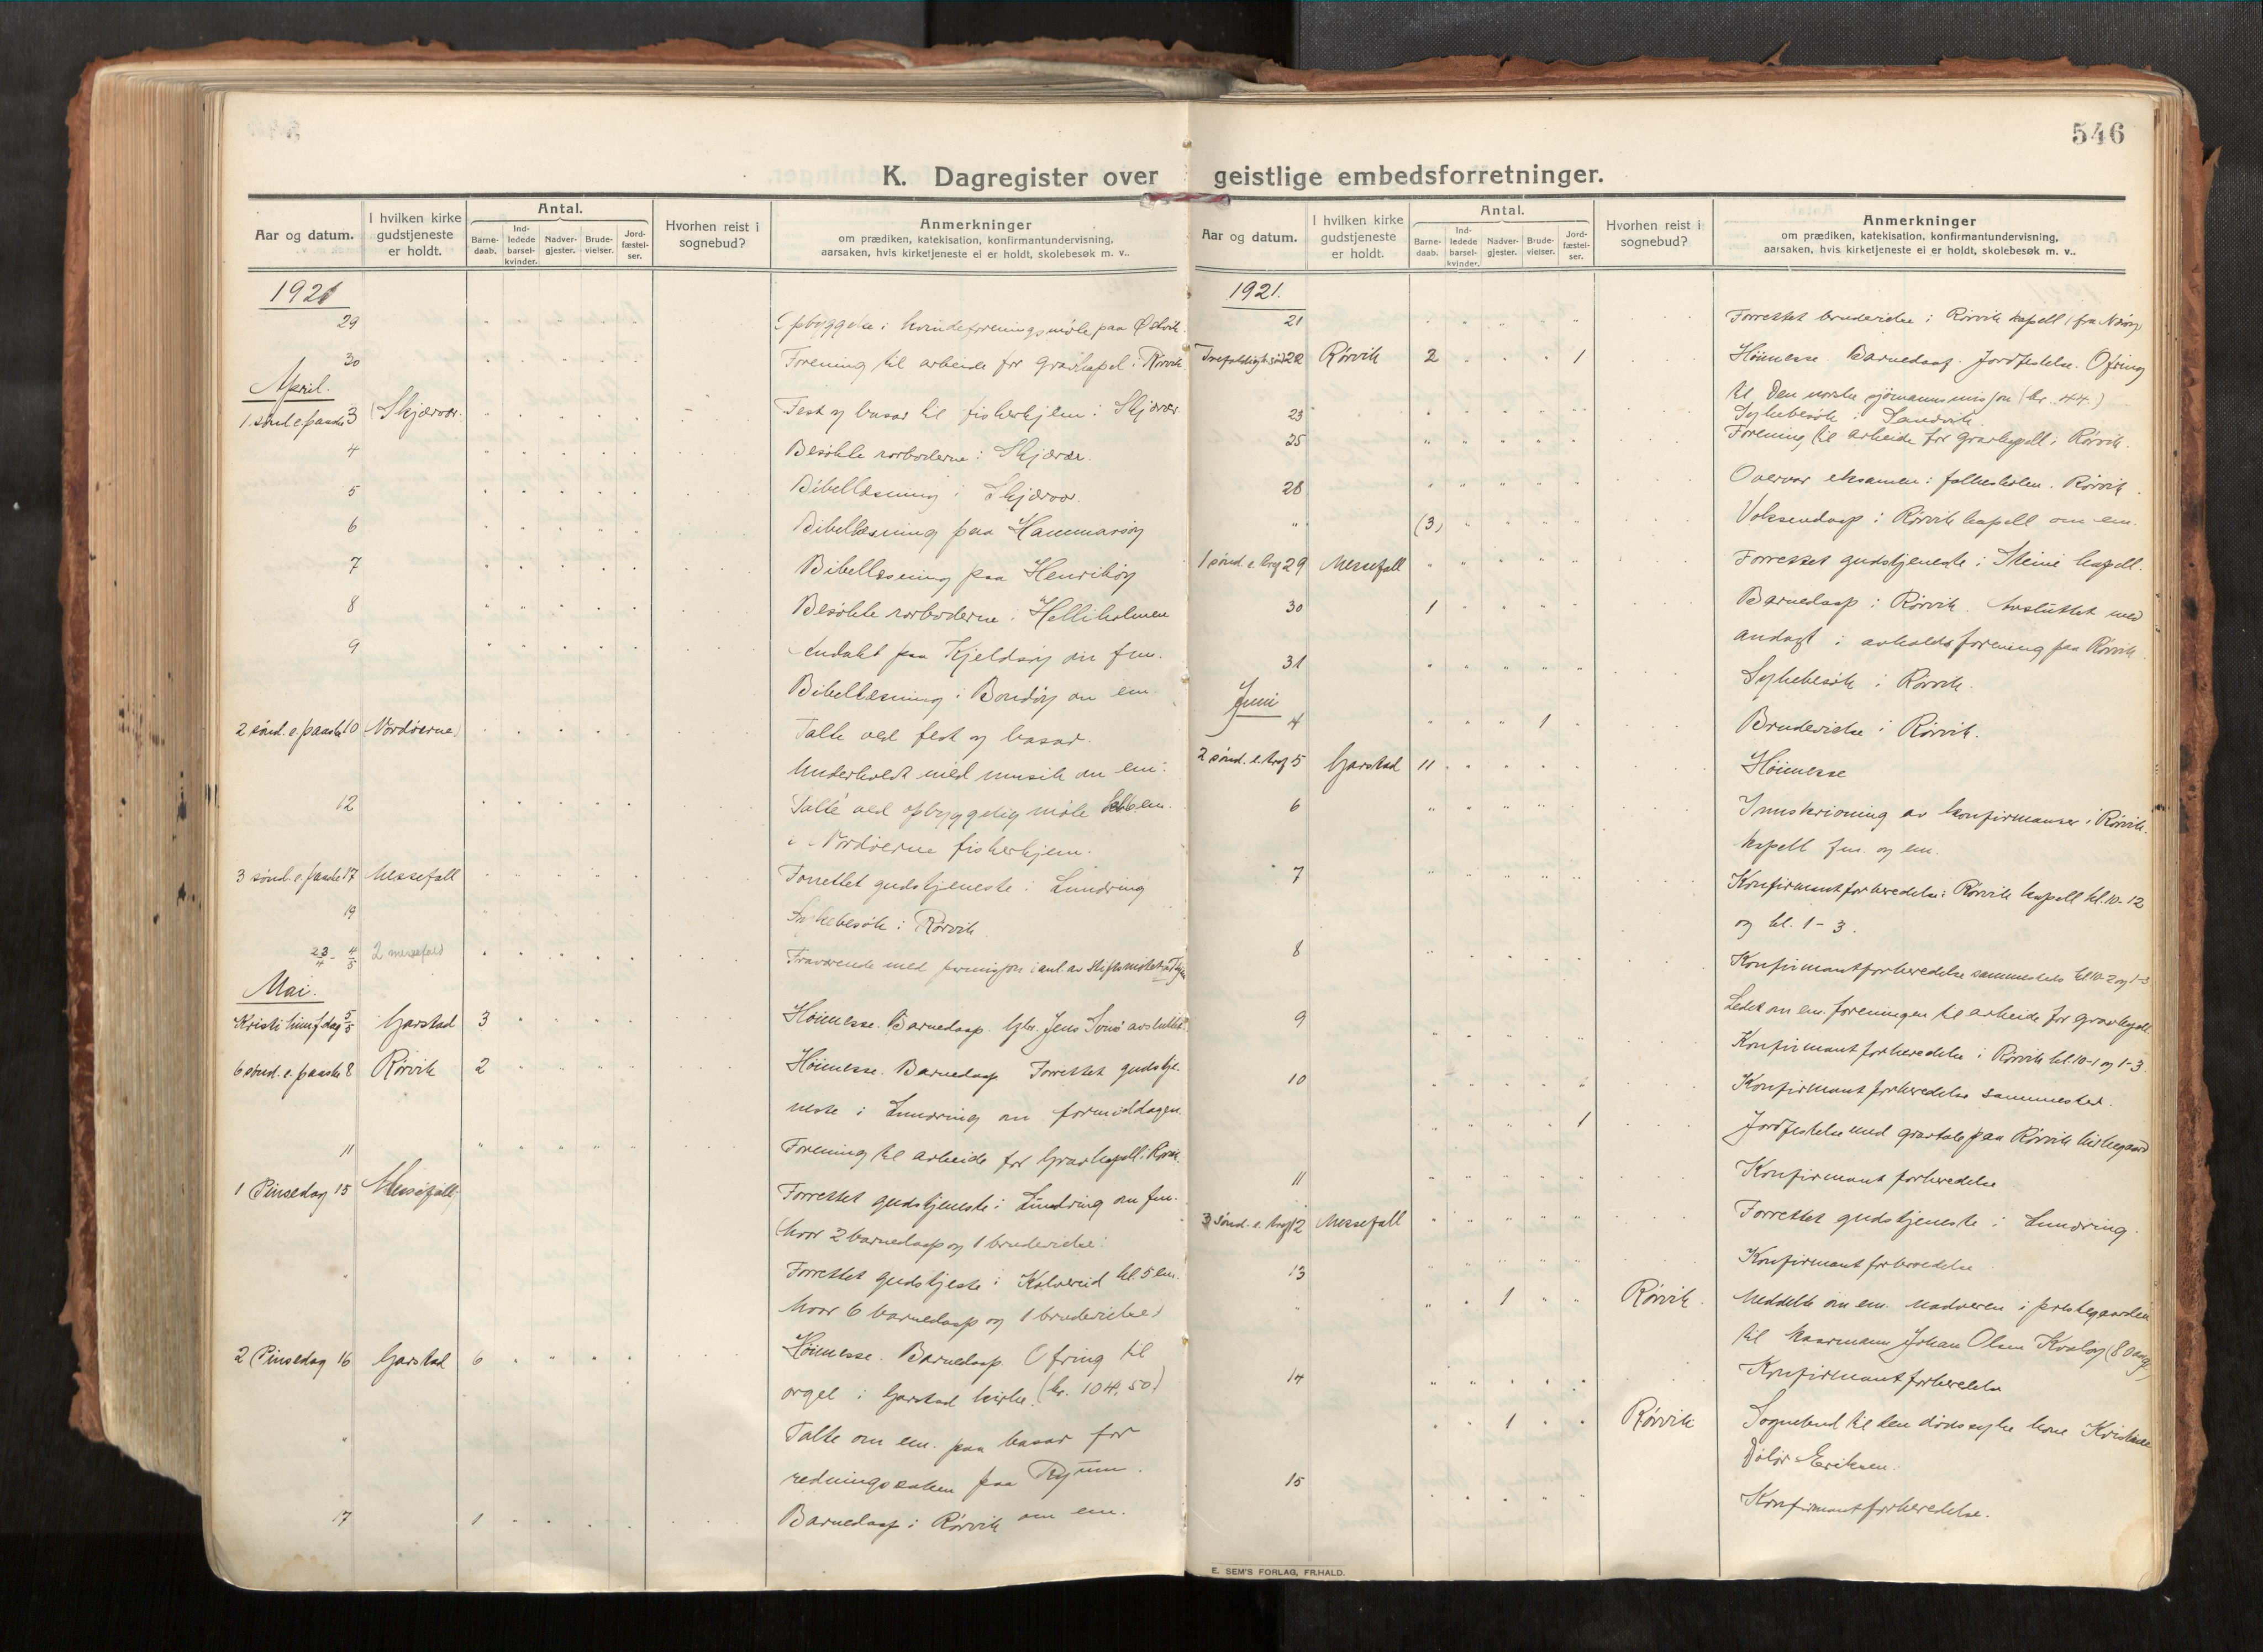 546
K. Dagregister over geistlige embedsforretninger.
Aar og datum.
I hvilken kirke gudstjeneste er holdt.
Antal.
Barne-daab.
Ind-ledede barsel-kvinder.
Nadver-gjester.
Brude-vielser.
Jord-fæstel-ser.
Hvorhen reist i sognebud?
Anmerkninger
om prædiken, katekisation, konfirmantundervisning,
aarsaken, hvis kirketjeneste ei er holdt, skolebesøk m. v..
1921
29 Opbyggelse i kvindeforeningsmøte paa
30 Forening til arbeide for gravkapel i Rørvik.
April.
1 sønd e paaske 3 Skjærvær Fest og basar til fiskerhjem i Skjærvær
4 Besøkte rorboderne i Skjærvær.
5 Bibellæsning i Skjærvær.
6 Bibellæsning paa Hammarøy
7 Bibellæsning paa Henriksøy
8 Besøkte rorboderne i Helliholmen
9 Andakt paa Kjeldsøy om fm.
Bibellæsning i Bondøy om em.
2 sønd. e. paaske 10 Nordøerne Talte ved fest og basar.
Underholdt med musik om em.
12 Talte ved opbyggelig møte kl. 6 em.
i Nordøerne fiskerhjem.
3 sønd. e. paaske 17 Messefall Forrettet gudstjeneste i Lundring
19 Sykebesøk i Rørvik
23/4 - 4/5 2 messefald Fraværende med permisjon i anl. av
Mai.
Kristi himf.dag 5/5 Garstad 3 Høimesse. Barnedaap. Jens avsluttet
6 sønd. e. paaske 8 Rørvik 2 Høimesse. Barnedaap Forrettet gudstje-
neste i Lundring om formiddagen
11 Forening til arbeide for Gravkapell i Rørvik.
1 Pinsedag 15 Messefall Forrettet gudstjeneste i Lundring om fm.
(hvor 2 barnedaap og 1 brudevielse.
Forrettet gudstjeste i Kolvereid kl. 5 em.
hvor 6 barnedaap og 1 brudevielse)
2 Pinsedag 16 Garstad 6 Høimesse. Barnedaap. Ofring til
orgel i Garstad kirke. (kr. 104,50)
" Talte om em. paa basar for
redningssaken paa Ryum.
17 1 Barnedaap i Rørvik om em.
Aar og datum.
I hvilken kirke gudstjeneste er holdt.
Antal.
Barne-daab.
Ind-ledede barsel-kvinder.
Nadver-gjester.
Brude-vielser.
Jord-fæstel-ser.
Hvorhen reist i sognebud?
Anmerkninger
om prædiken, katekisation, konfirmantundervisning,
aarsaken, hvis kirketjeneste ei er holdt, skolebesøk m. v..
1921.
21 Forrettet brudevielse i Rørvik kapell (fra
22 Rørvik 2 1 Høimesse Barnedaap. Jordfestelse. Ofring
til Den norske sjømannsmisjon (kr. 44.)
23 Sykebesøk i Sandvik.
25 Forening til arbeide for gravkapell i Rørvik.
28 Overvar eksamen i folkeskolen. Rørvik.
" (3) Voksendaap i Rørvik kapell om em.
1 sønd. e. tref 29 Messefall Forrettet gudstjeneste i Steine kapell.
30 1 Barnedaap i Rørvik. Avsluttet med
andagt i avholdsforening paa Rørvik.
31 Sykebesøk i Rørvik.
Juni
4 1 Brudevielse i Rørvik.
2 sønd. e. tref 5 Garstad 11 Høimesse
6 Innskrivning av konfirmanter i Rørvik
kapell fm. og em.
7 Konfirmantforberedelse i Rørvik kapell kl. 10-12
og kl. 1-3.
8 Konfirmantforberedelse sammesteds kl. 10-2 og 1-3
Ledet om em. foreningen til arbeide for gravkapell
9 Konfirmantforberedelse i Rørvik kl. 10-1 og 1-3.
10 Konfirmantforberedelse sammested.
1 Jordfestelse med gravtale paa Rørvik kirkegaard
11 Konfirmantforberedelse
3 sønd. e. tref 12 Messefall Forrettet gudstjeneste i Lundring.
13 Konfirmantforberedelse
" 1 Rørvik. Meddelte om em. nadveren i prestegaarden
til kaarmann Johan Olsen (80 aar)
14 Konfirmantforberedelse
1 Rørvik Sognebud til den dødssyke kone
Eriksen.
15 Konfirmantforberedelse.
E. SEM'S FORLAG, FR.HALD.